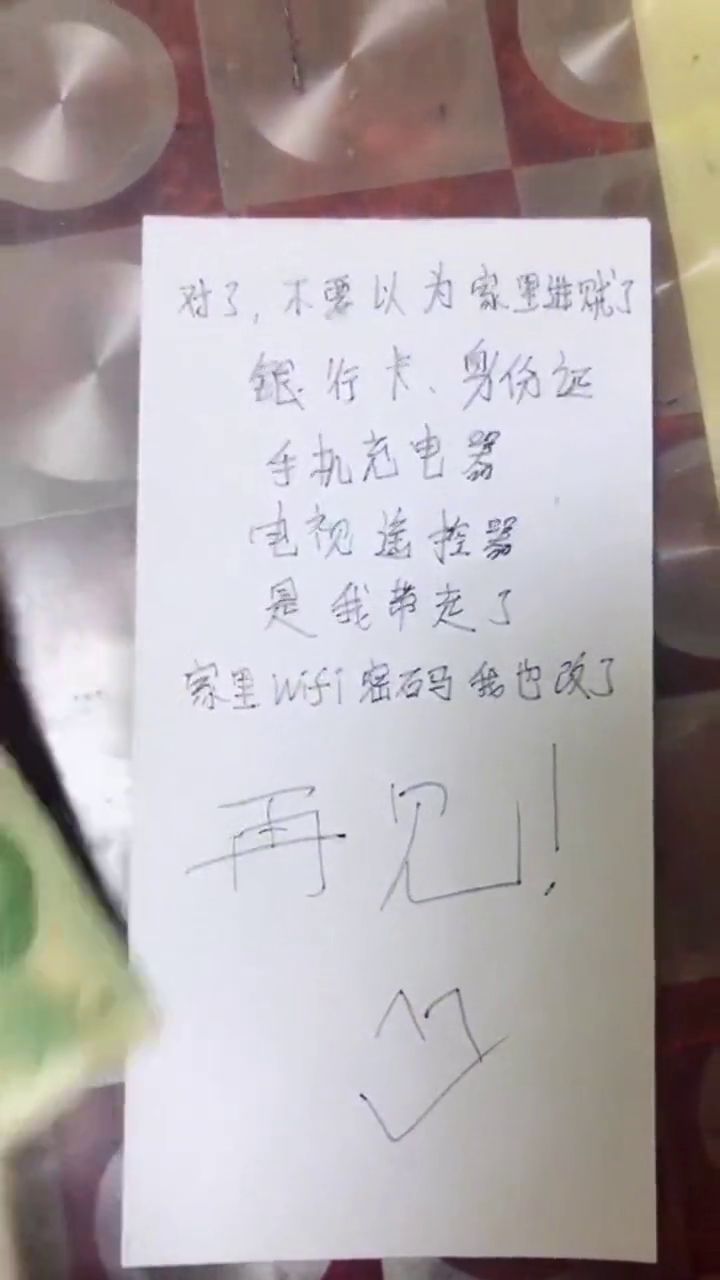 对了,不要以为家里进贼了
银行卡、身份证
手机充电器
电视遥控器
是我带走了
家里Wifi密码我也改了
再见!